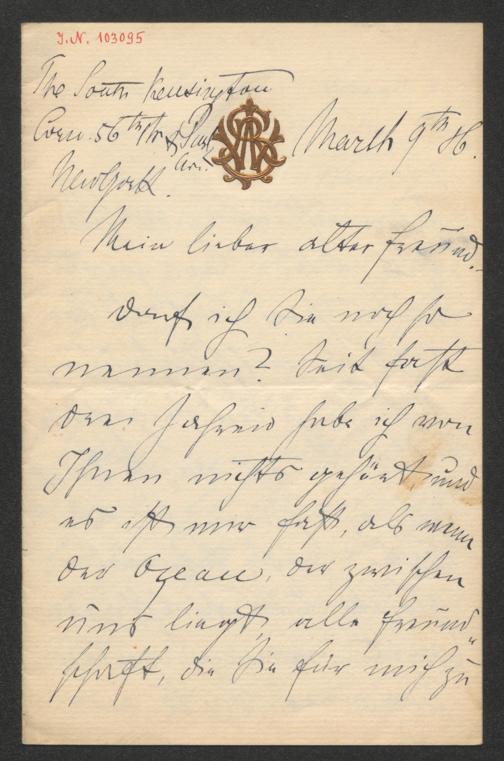 J.N. 103095
The South Kensington
Corn. 56th Str & Park
Av.
New York.
March 9th 86.
Mein lieber alter Freund.
darf ich Sie noch so
nennen? Seit fast
drei Jahren habe ich von
Ihnen nichts gehört und
es ist mir fast, als wenn
der Ozean, der zwischen
uns liegt, alle Freund„
schaft, die Sie für mich zu